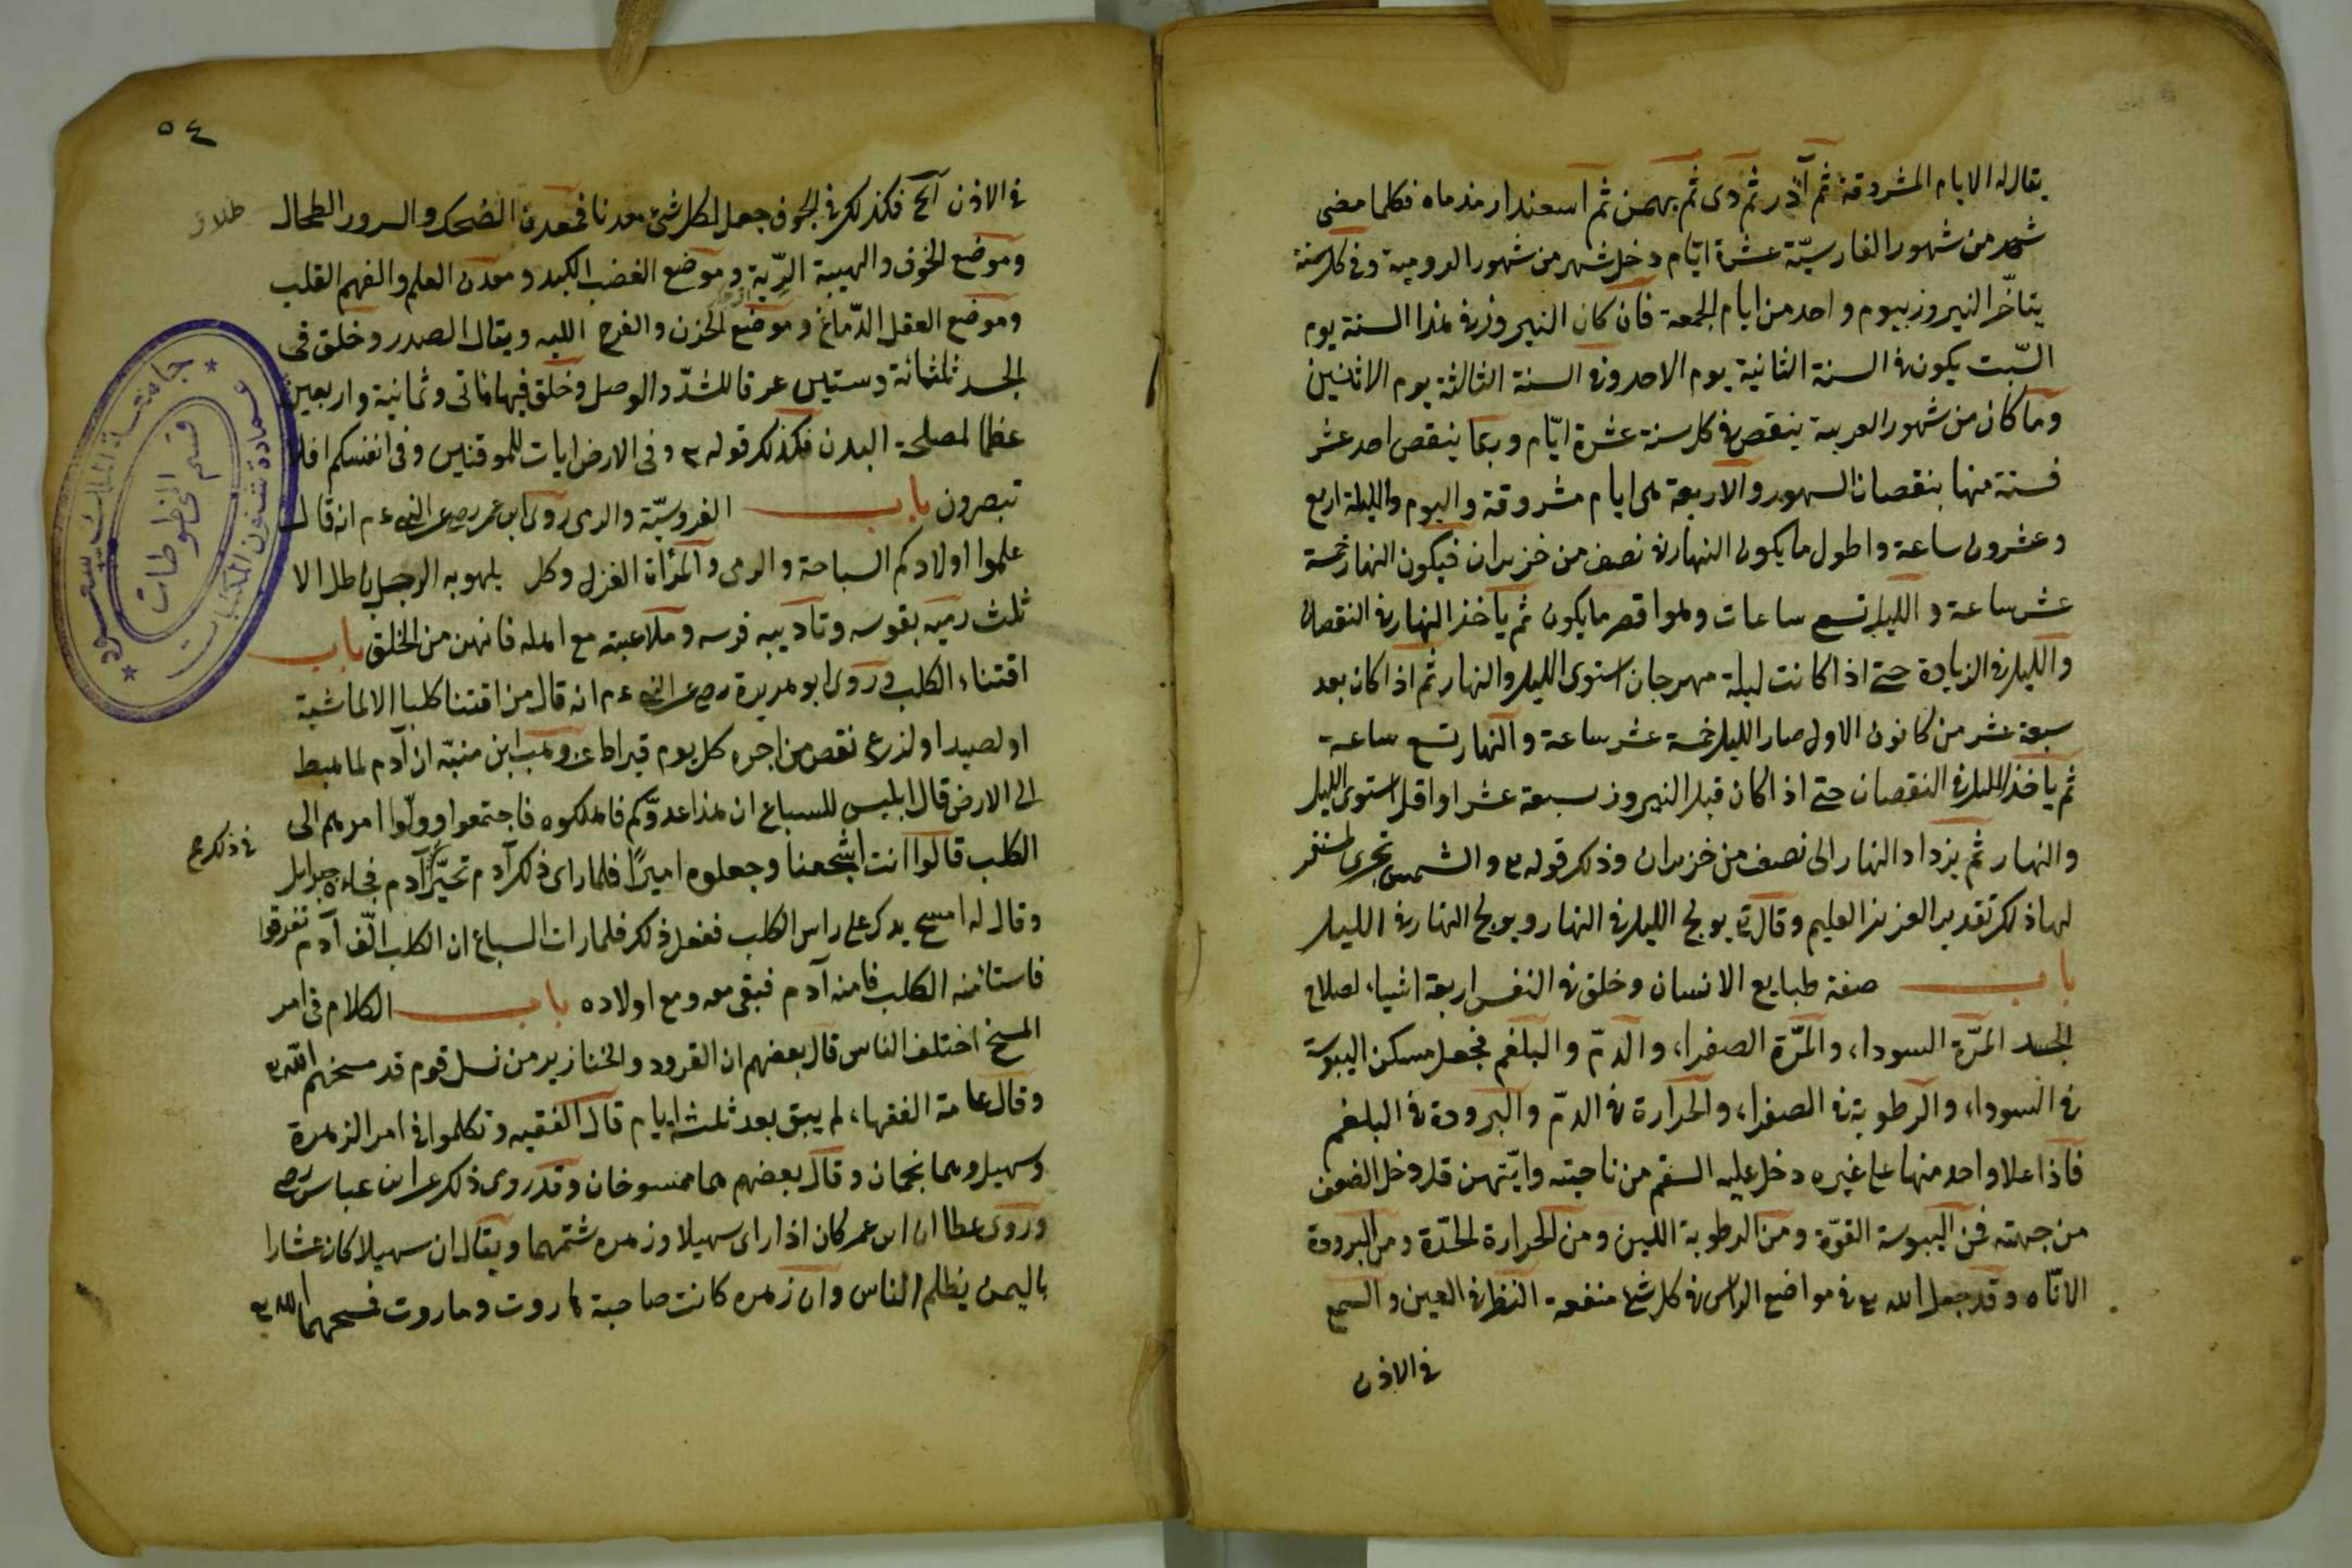 يقال له الايام المشروقة ثم آذر ثم دى ثم بهمن ثم اسعندار مذماه فكلما مضى
شهر من شهور الفارسيّة عشرة ايّام دخل شهر من شهور الرومية وفى كل سنة
يتاخّر النيروز بيوم واحد من ايام الجمعة فان كان النيروز فى هذا السنة يوم
السّبت يكون فى السنة الثانية يوم الاحد وفى السنة الثالثة يوم الاثنين
وما كان من شهور العربية ينقص فى كل سنة عشرة ايّام وربما ينقص احد عشر
فستة منها بنقصان الشهور والاربعة هى ايام مشروقة واليوم والليلة اربع
وعشرون ساعة واطول ما يكون النهار فى نصف من خزيران فيكون النهار خمسة
عشر ساعة والليل تسع ساعات وهو اقصر ما يكون ثم ياخذ النهار فى النقصان
والليل فى الزيادة حتى اذا كانت ليلة مهرجان استوى الليل والنهار ثم اذا كان بعد
سبعة عشر من كانون الاول صار الليل خمسة عشر ساعة والنهار تسع ساعة
ثم ياخذ الليل فى النقصان حتى اذا كان قبل النيروز بسبعة عشر او اقل استوى الليل
والنهار ثم يزداد النهار الى نصف من خزيران وذلك قوله تع والشمس تجرى لمستقر
لها ذلك تقدير العزيز العليم وقال تع يولج الليل فى النهار ويولج النهار فى الليل
باب صفة طبايع الانسان وخلق فى النفس اربعة اشياء لصلاح
الجسد المرّة السوداء والمرّة الصفراء والدمّ والبلغم فجعل مسكن اليبوسة
فى السوداء والرطوبة فى الصفراء والحرارة فى الدمّ والبرودة فى البلغم
فاذا علا واحد منها على غيره دخل عليه السقم من ناحيته وايّتهن قل دخل الضعف
من جهته فمن اليبوسة القوّة ومن الرطوبة اللين ومن الحرارة الحدّة ومن البرودة
الاناه وقد جعل الله تع فى مواضع الراس فى كل شئ منفعة النظر فى العين والسمع
فى الاذن
٥٤
فى الاذن آلخ فكذلك فى الجوف جعل لكل شئ معدنا فمعدن الضحك والسرور الطحال
وموضع الخوف والهيبة الرّية وموضع الغضب الكبد ومعدن العلم والفهم القلب
وموضع العقل الدّماغ وموضع الحزن والفرح الليه ويقال الصدر وخلق فى
الجسد ثلثمائة وستين عرقا للشدّ والوصل وخلق فيها ماتى وثمانية واربعين
عظما لمصلحة البدن فكذلك قوله تع وفى الارض ايات للموقنين وفى انفسكم افلا
تبصرون باب الفروسيّة والرمى روى ابن عمر رضى عن النبى ءم انه قال
علموا اولادكم السباحة والرمى والمرأة الغزل وكل يلهو به الرجل باطل الا
ثلث رميه بقوسه وتاديبه فرسه وملاعبته مع اهله فانهن من الخلق باب
اقتناء الكلب وروى ابو هريرة رضى عن النبى ءم انه قال من اقتنا كلبا الا لماشية
او لصيد او لزرع نقص من اجره كل يوم قيراطا عن وهب ابن منبّه ان آدم لما هبط
الى الارض قال ابليس للسباع ان هذا عدوّكم فاهلكوه فاجتمعوا وولّوا امرهم الى
الكلب قالوا انت اشجعنا وجعلوه اميرًا فلما راى ذلك آدم تحيّر آدم فجاءه جبرايل
فى ذلك
وقال له امسح يدك على راس الكلب ففعل ذلك فلما رات السباع ان الكلب الّف آدم تفرقوا
فاستامنه الكلب فامنه آدم فبقى معه ومع اولاده باب الكلام فى امر
المسخ اختلف الناس قال بعضهم ان القرود والخنازير من نسل قوم قد مسخهم الله تع
وقال عامة الفقهاء لم يبق بعد ثلثة ايام قال الفقيه وتكلموا فى امر الزهرة
وسهيل وهما نجمان وقال بعضهم هما ممسوخان وقد روى ذلك عن ابن عباس رضى
وروى عطا ان ابن عمر كان اذا راى سهيلا وزهره شتمهما ويقال ان سهيلا كان عشارا
باليمن يظلم الناس وان زهره كانت صاحبة هاروت وماروت فمسخهما الله تع
جامعة الملك سعود
عمادة شئون المكتبات
قسم المخطوطات